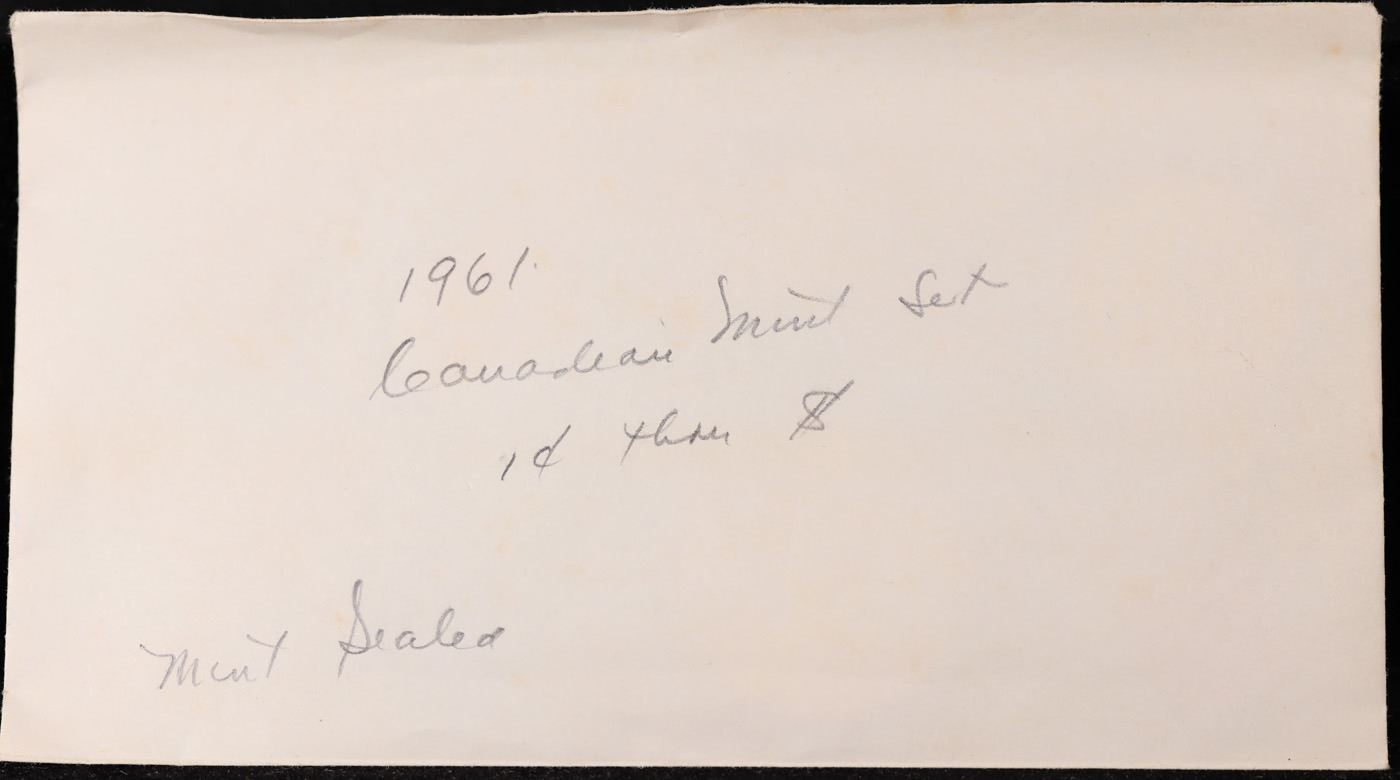 1961
Canadian Mint Set
1¢ thru $
Mint Sealed